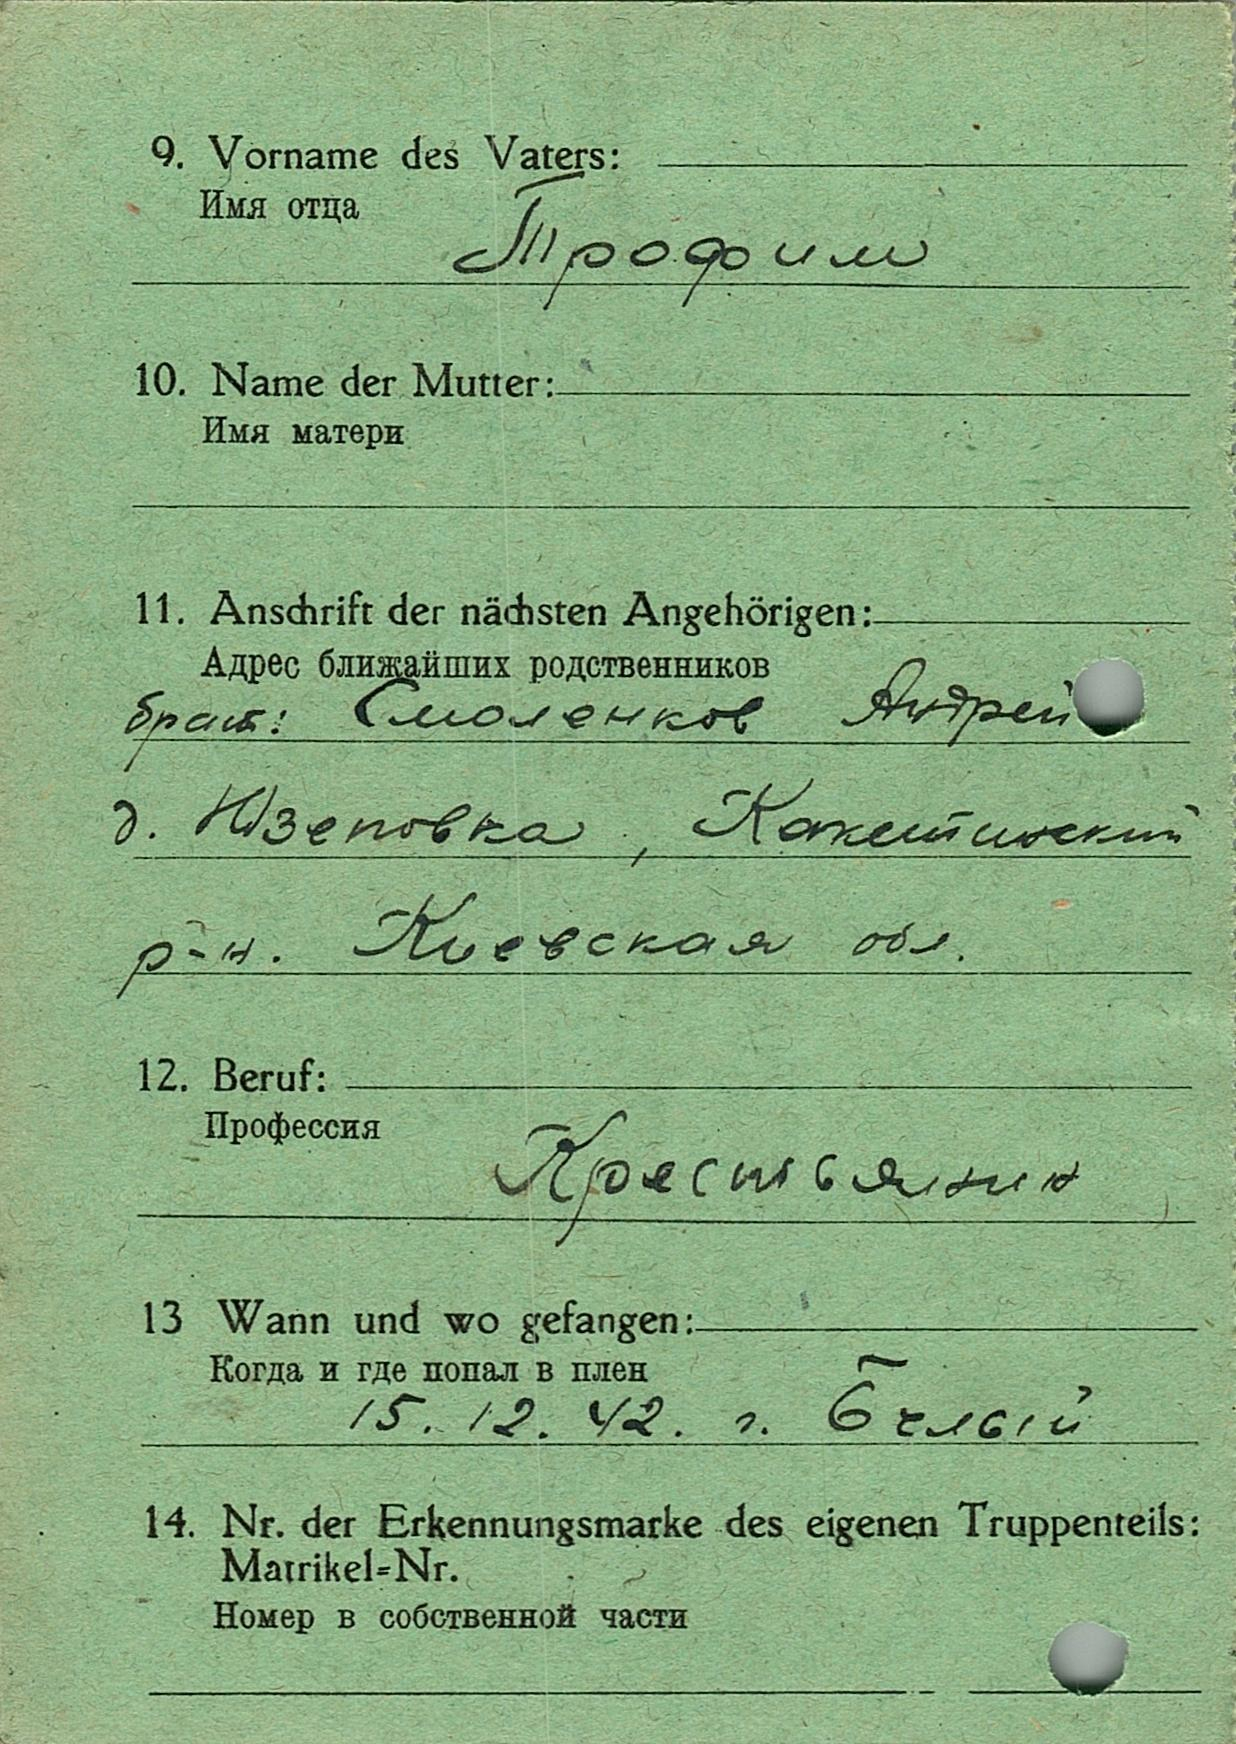 9. Vorname des Vaters:
Имя отца
Трофим
10. Name der Mutter:
Имя матери
11. Anschrift der nächsten Angehörigen:
Адрес ближайших родственников
брат: Смоленков Андрей
д. Юзеповка, 
р-н. Киевская обл.
12. Beruf:
Профессия
Крестьянин
13 Wann und wo gefangen:
Когда и где попал в плен
15. 12. 42. г. Белый
14. Nr. der Erkennungsmarke des eigenen Truppenteils:
Matrikel=Nr.
Номер в собственной части